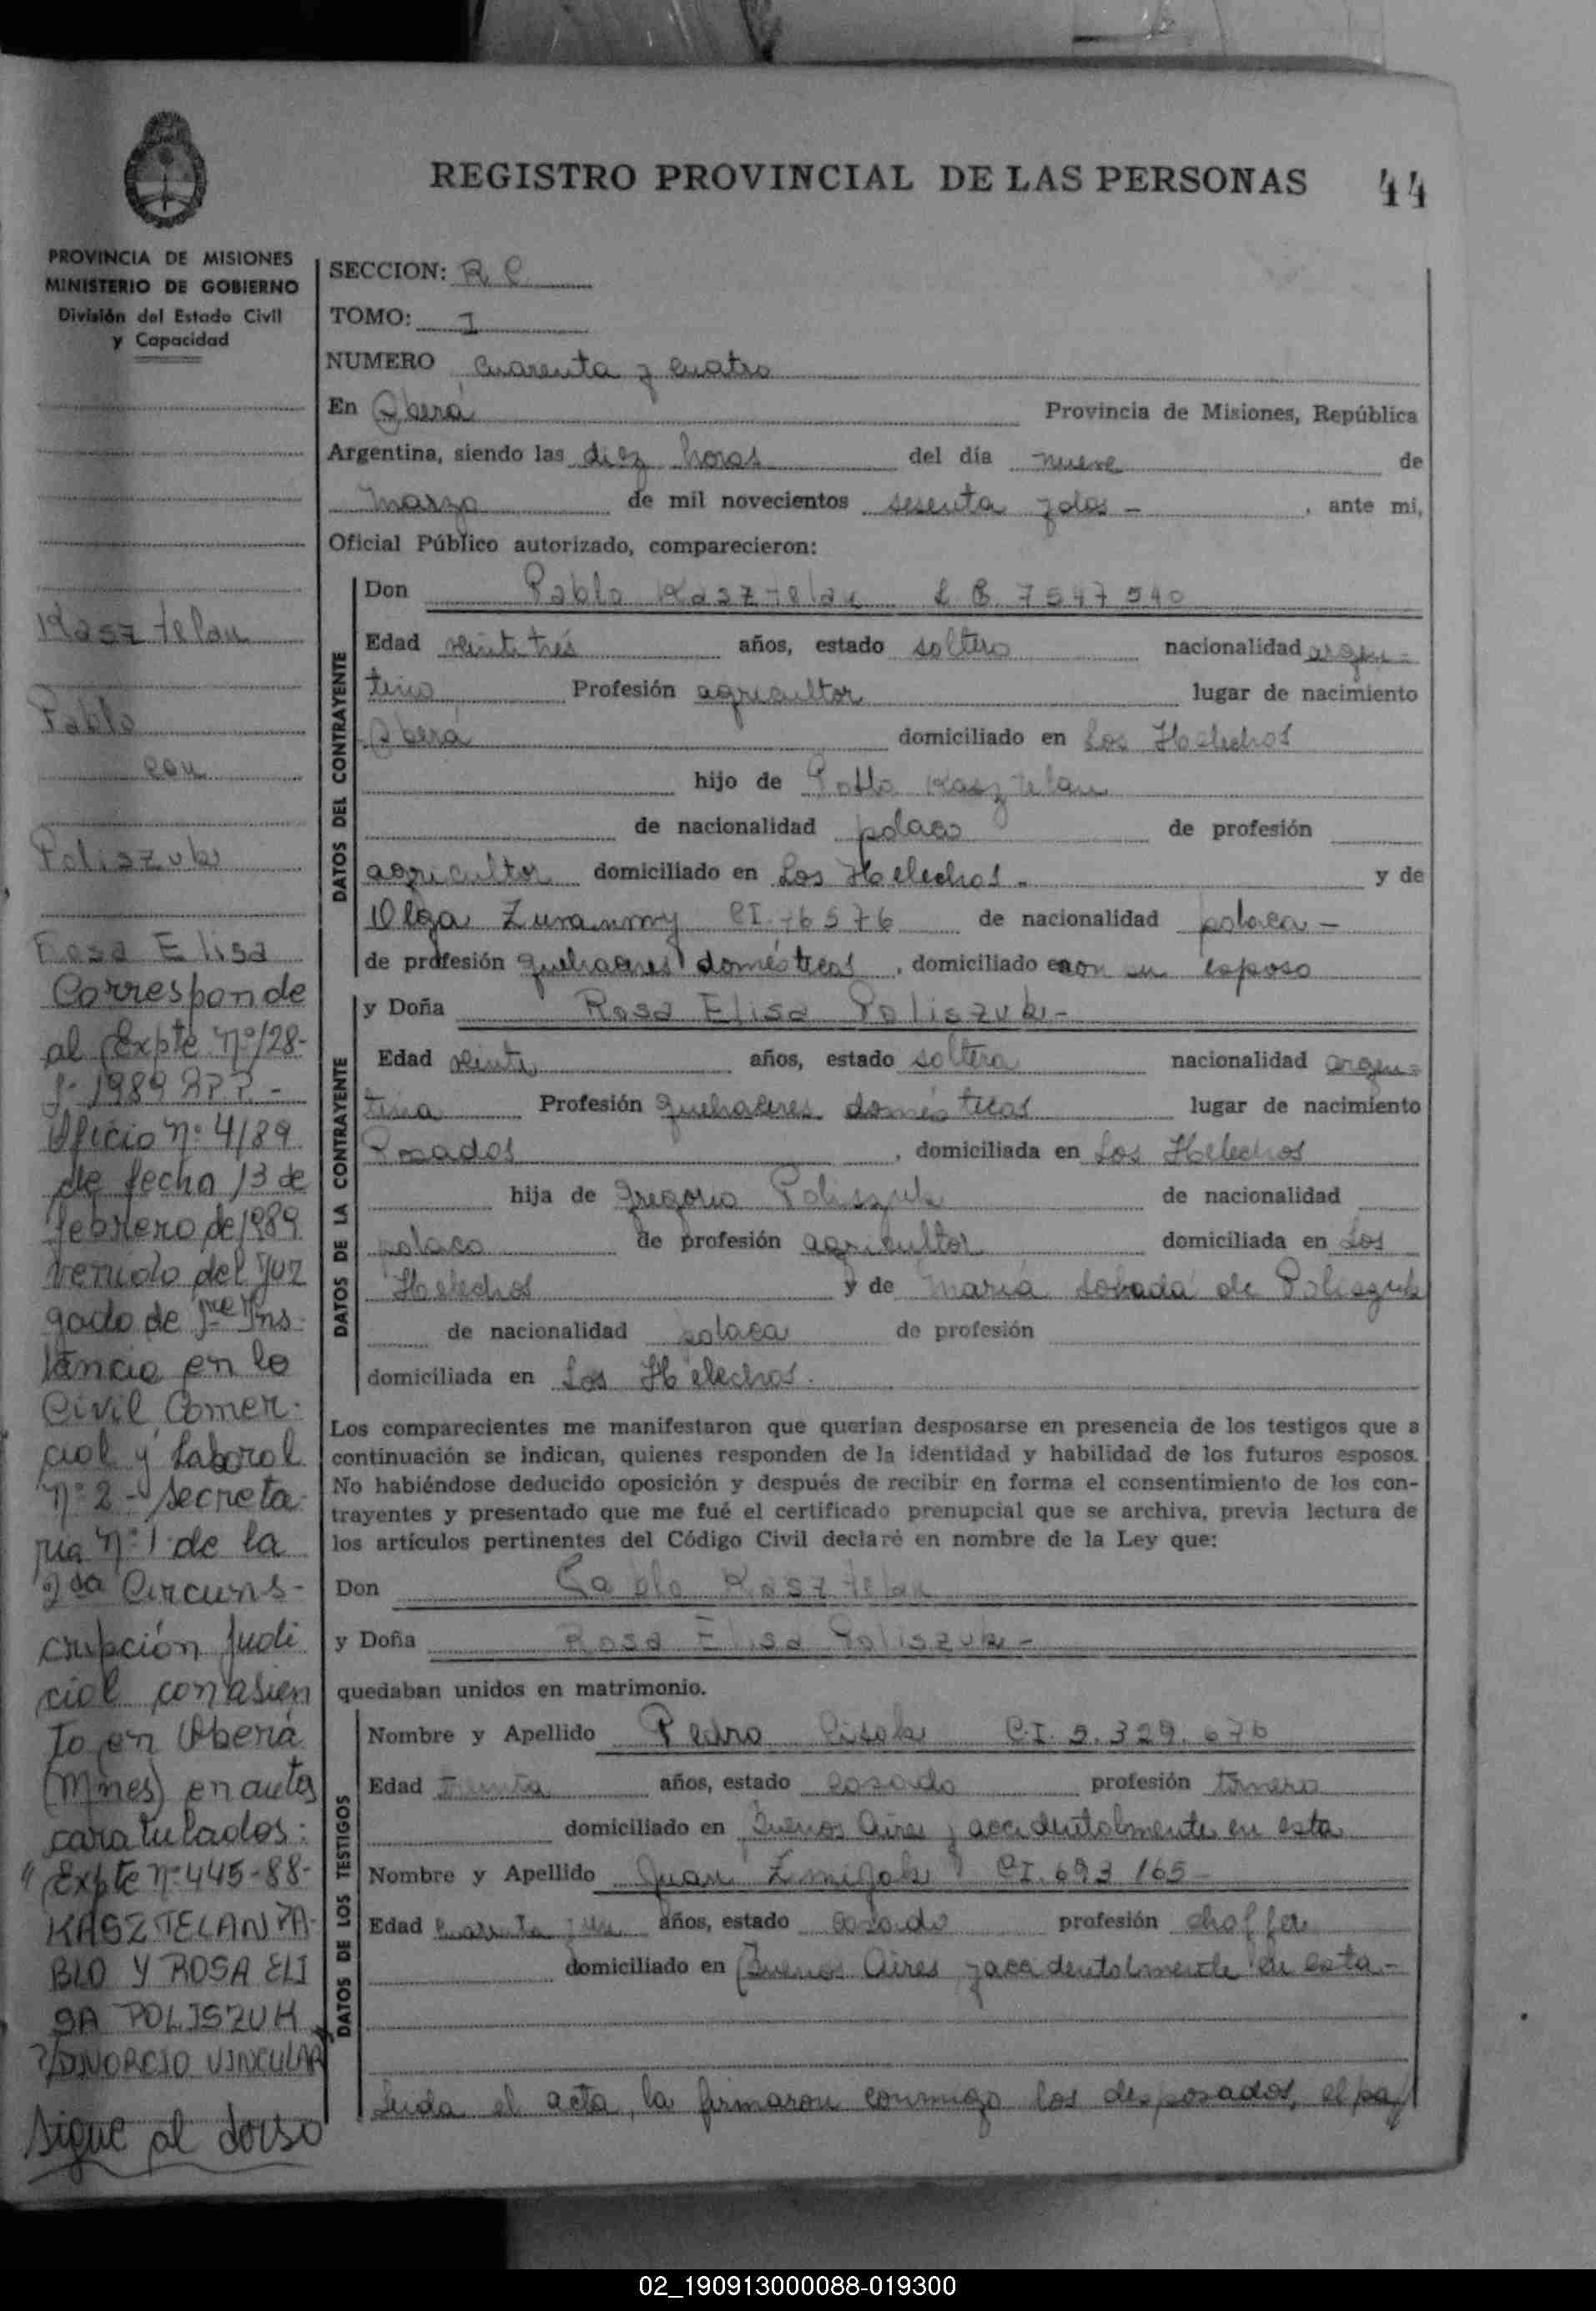 REGISTRO PROVINCIAL DE LAS PERSONAS 44
PROVINCIA DE MISIONES
MINISTERIO DE GOBIERNO
División del Estado Civil
y Capacidad
Kasztelan
Pablo
con
Poliszuk
Rosa Elisa
Corresponde
al Expte Nº 128-
1989
Oficio Nº 4/89
de fecha 13 de
febrero de 1989
venido del Juz
gado de 1ra Ins
tancia en lo
Civil Comer-
cial y Laboral
Nº 2 - Secreta
ria Nº 1 de la
2da Circuns-
cripción Judi
cial con asien
to en Oberá
(Mnes) en autos
caratulados:
"Expte Nº 445-88-
KASZTELAN PA-
BLO Y ROSA ELI
SA POLISZUK
S/DIVORCIO VINCULAR
Sigue al dorso
SECCION: R C
TOMO: 1
NUMERO Cuarenta y cuatro
En Oberá Provincia de Misiones, República
Argentina, siendo las diez horas del día nueve de
marzo de mil novecientos sesenta y dos - , ante mi,
Oficial Público autorizado, comparecieron:
DATOS DEL CONTRAYENTE
Don Pablo Kasztelan L E 7547540
Edad veintitrés años, estado soltero nacionalidad argen-
tino Profesión agricultor lugar de nacimiento
Oberá domiciliado en Los Helechos
hijo de Pablo Kasztelan
de nacionalidad polaco de profesión
agricultor domiciliado en Los Helechos - y de
Olga CI. 76576 de nacionalidad polaca -
de profesión quehaceres domésticos , domiciliado en con su esposo
DATOS DE LA CONTRAYENTE
y Doña Rosa Elisa Poliszuk -
Edad veinte años, estado soltera nacionalidad argen-
tina Profesión quehaceres domésticos lugar de nacimiento
Posadas , domiciliada en Los Helechos
hija de Gregorio Poliszuk de nacionalidad
polaco de profesión agricultor domiciliada en Los
Helechos y de María de Poliszuk
de nacionalidad polaca de profesión
domiciliada en Los Helechos.
Los comparecientes me manifestaron que querían desposarse en presencia de los testigos que a
continuación se indican, quienes responden de la identidad y habilidad de los futuros esposos.
No habiéndose deducido oposición y después de recibir en forma el consentimiento de los con-
trayentes y presentado que me fué el certificado prenupcial que se archiva, previa lectura de
los artículos pertinentes del Código Civil declaré en nombre de la Ley que:
Don Pablo Kasztelan
y Doña Rosa Elisa Poliszuk -
quedaban unidos en matrimonio.
DATOS DE LOS TESTIGOS
Nombre y Apellido Pedro C.I. 5.329.676
Edad treinta años, estado casado profesión tornero
domiciliado en Buenos Aires y accidentalmente en esta
Nombre y Apellido Juan CI. 693.165 -
Edad cuarenta y años, estado casado profesión chofer
domiciliado en Buenos Aires y accidentalmente en esta -
Leida el acta, la firmaron conmigo los desposados, el pa
02_190913000088-019300